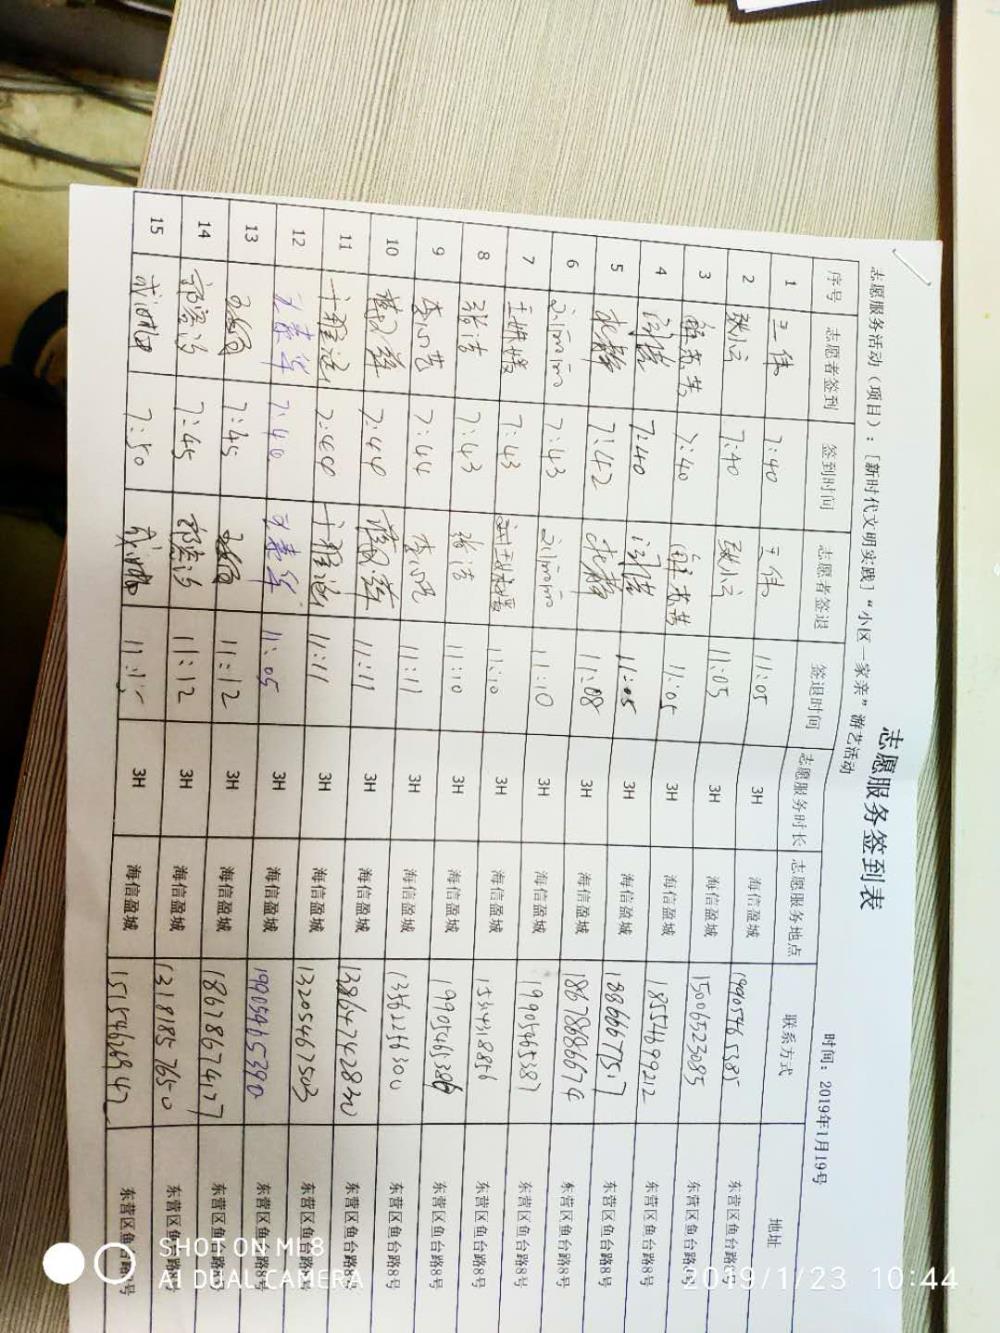 志愿服务签到表
志愿服务活动（项目）：[新时代文明实践]“小区一家亲”游艺活动 时间：2019年1月19号
序号 志愿者签到 签到时间 志愿者签退 签退时间 志愿服务时长 志愿服务地点 联系方式 地址
1 王伟 7:40 王伟 11:05 3H 海信盈城 19905465385 东营区鱼台路8号
2 张小云 7:40 张小云 11:05 3H 海信盈城 15006523085 东营区鱼台路8号
3 7:40 11:05 3H 海信盈城 18554699212 东营区鱼台路8号
4 7:40 11:05 3H 海信盈城 东营区鱼台路8号
5 7:42 11:08 3H 海信盈城 18678686674 东营区鱼台路8号
6 7:43 11:10 3H 海信盈城 19905465387 东营区鱼台路8号
7 7:43 11:10 3H 海信盈城 东营区鱼台路8号
8 张洁 7:43 张洁 11:10 3H 海信盈城 东营区鱼台路8号
9 7:44 11:11 3H 海信盈城 13562256300 东营区鱼台路8号
10 7:44 11:11 3H 海信盈城 13864742830 东营区鱼台路8号
11 7:40 11:11 3H 海信盈城 13205467503 东营区鱼台路8号
12 7:40 11:05 3H 海信盈城 19905465390 东营区鱼台路8号
13 7:45 11:12 3H 海信盈城 18678674177 东营区鱼台路8号
14 7:45 11:12 3H 海信盈城 13181857650 东营区鱼台路8号
15 7:50 11:15 3H 海信盈城 15154626947 东营区鱼台路8号
SHOT ON MI 8
AI DUAL CAMERA
2019/1/23 10:44